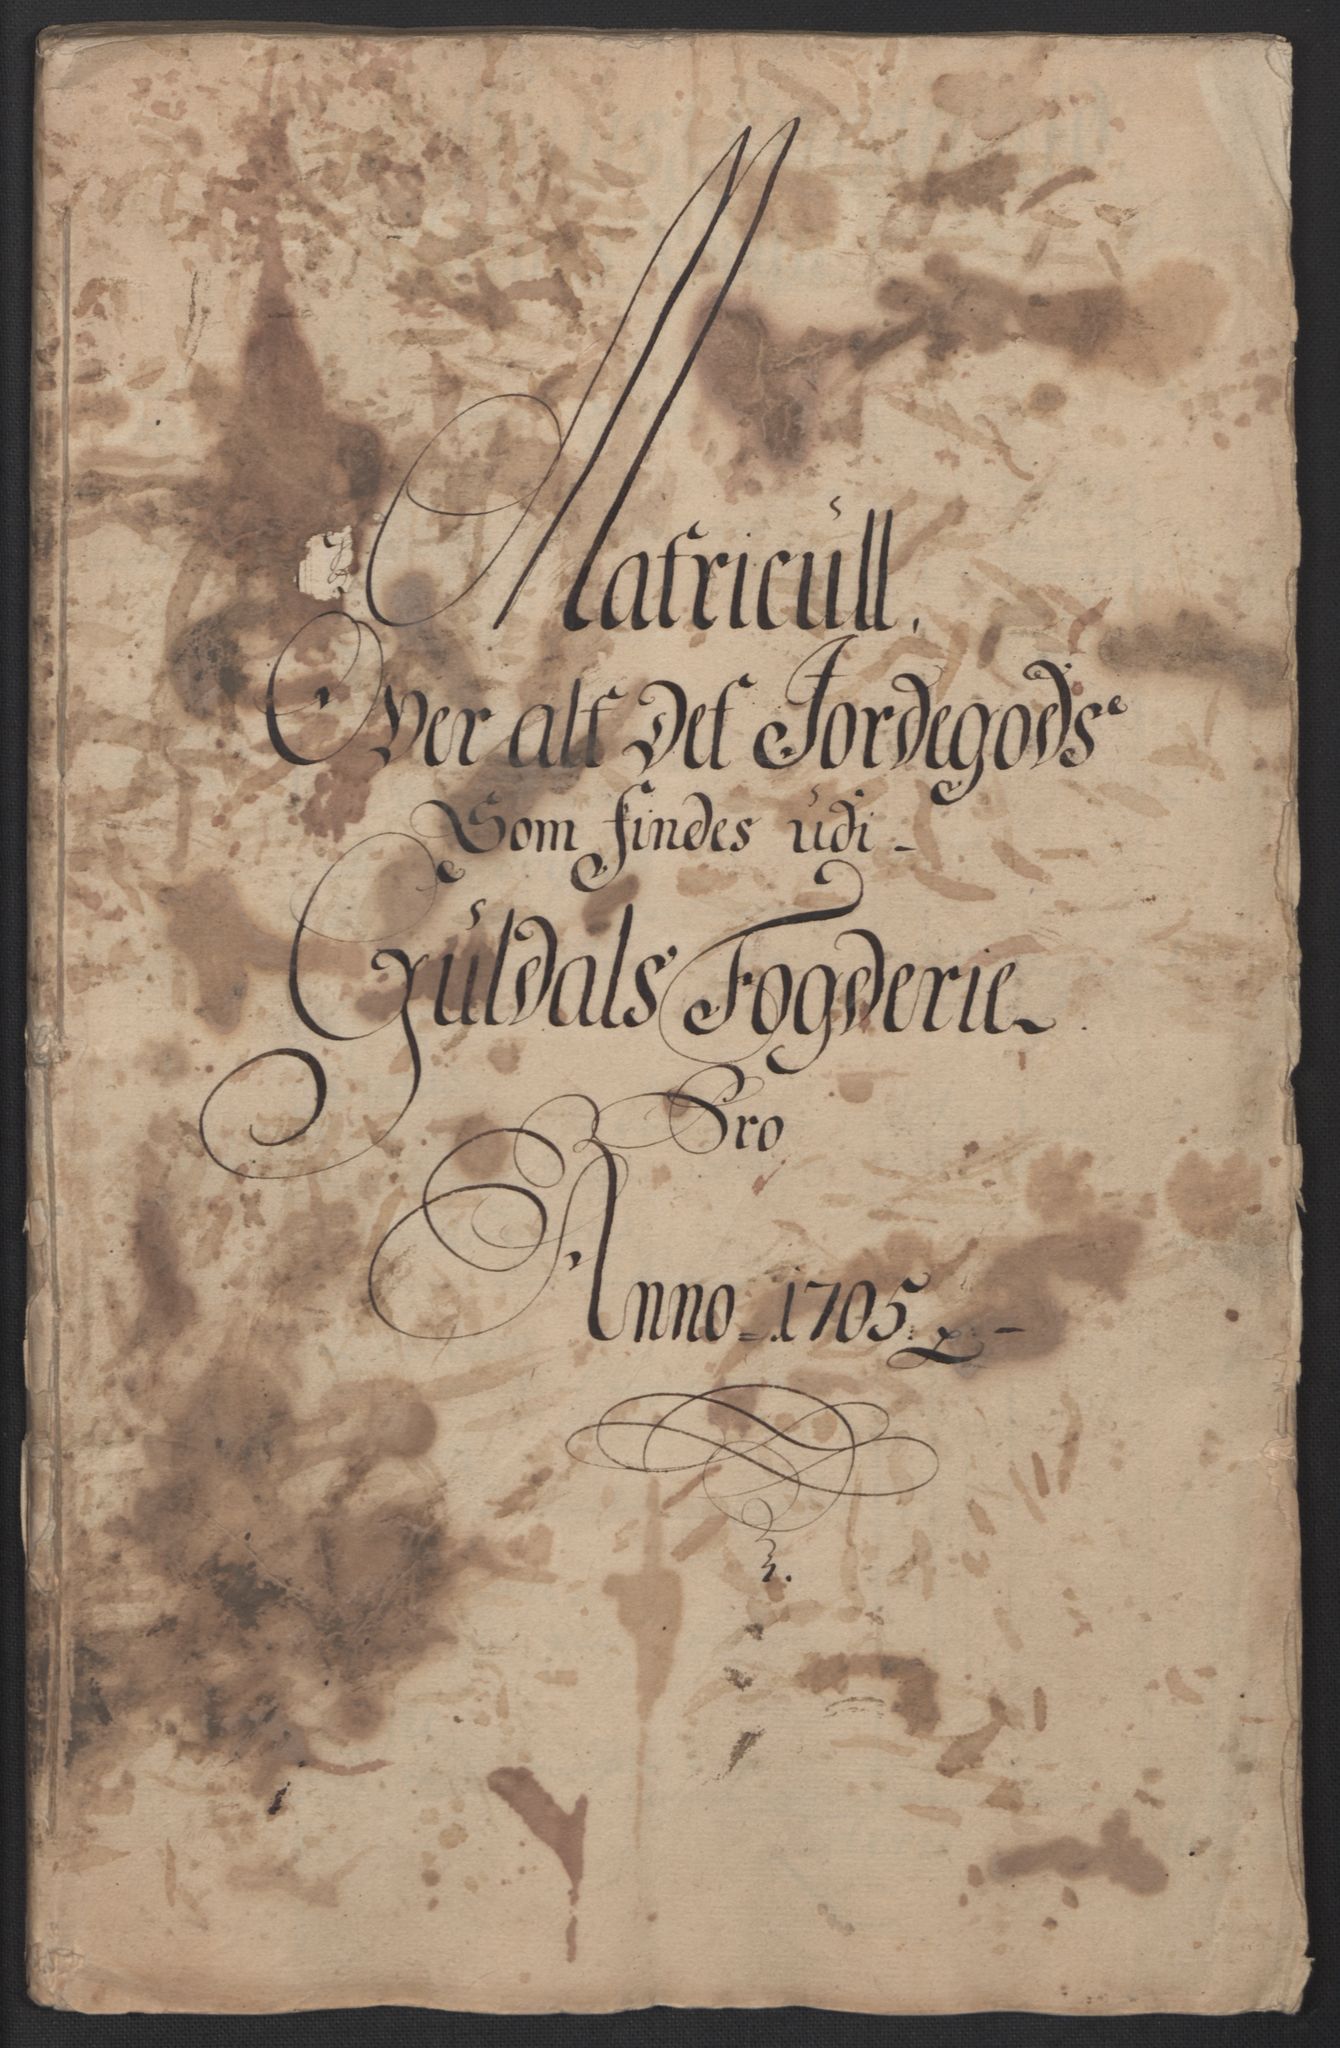 Matricull.
Over alt Det Jordegods
Som findes udi -
Guldals Fogderie
Pro
Anno = 1705